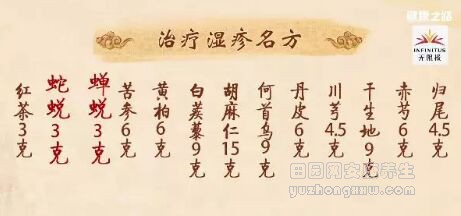 健康之路
INFINITUS
无限极
治疗湿疹名方
归尾4.5克
赤芍6克
干生地9克
川芎4.5克
丹皮6克
何首乌9克
胡麻仁15克
白蒺藜9克
黄柏6克
苦参6克
蝉蜕3克
蛇蜕3克
红茶3克